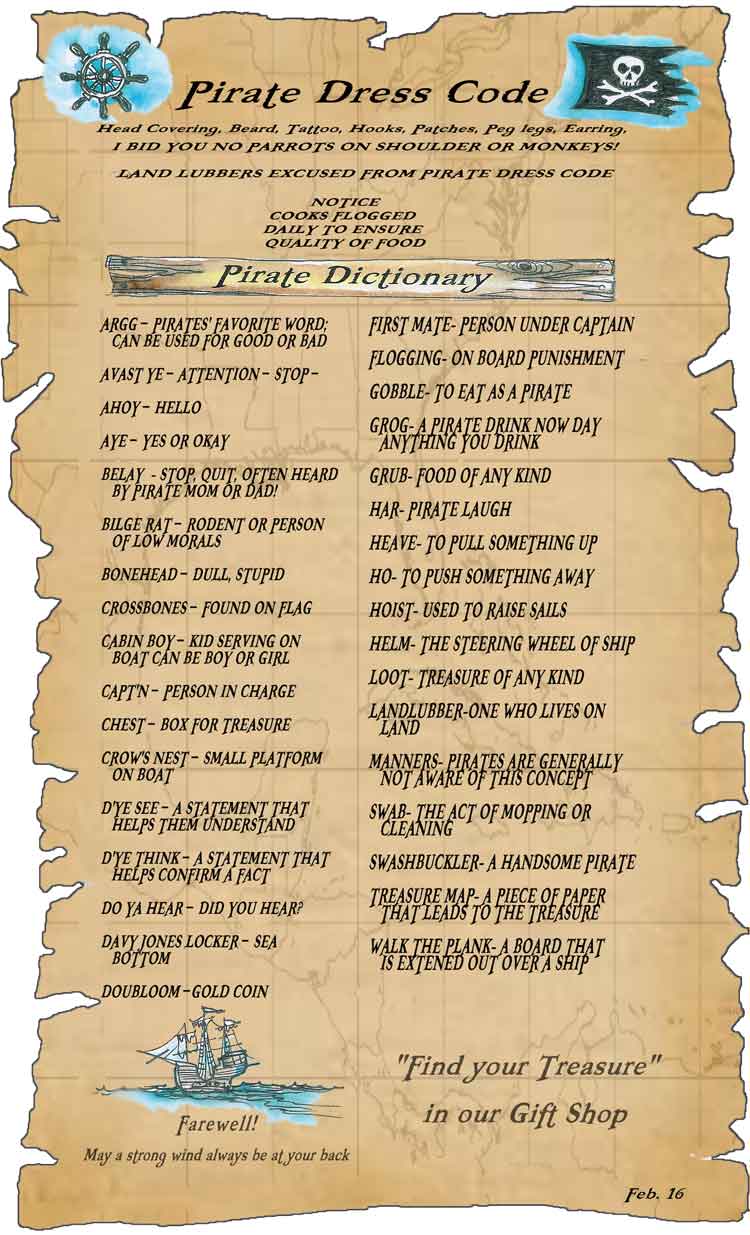 Pirate Dress Code
Head Covering, Beard, Tattoo, Hooks, Patches, Peg legs, Earring,
I BID YOU NO PARROTS ON SHOULDER OR MONKEYS!
LAND LUBBERS EXCUSED FROM PIRATE DRESS CODE
NOTICE
COOKS FLOGGED
DAILY TO ENSURE
QUALITY OF FOOD
Pirate Dictionary
ARGG – PIRATES' FAVORITE WORD;
CAN BE USED FOR GOOD OR BAD
AVAST YE – ATTENTION – STOP –
AHOY – HELLO
AYE – YES OR OKAY
BELAY - STOP, QUIT, OFTEN HEARD
BY PIRATE MOM OR DAD!
BILGE RAT – RODENT OR PERSON
OF LOW MORALS
BONEHEAD – DULL, STUPID
CROSSBONES – FOUND ON FLAG
CABIN BOY – KID SERVING ON
BOAT CAN BE BOY OR GIRL
CAPT'N – PERSON IN CHARGE
CHEST – BOX FOR TREASURE
CROW'S NEST – SMALL PLATFORM
ON BOAT
D'YE SEE – A STATEMENT THAT
HELPS THEM UNDERSTAND
D'YE THINK – A STATEMENT THAT
HELPS CONFIRM A FACT
DO YA HEAR – DID YOU HEAR?
DAVY JONES LOCKER – SEA
BOTTOM
DOUBLOOM –GOLD COIN
FIRST MATE- PERSON UNDER CAPTAIN
FLOGGING- ON BOARD PUNISHMENT
GOBBLE- TO EAT AS A PIRATE
GROG- A PIRATE DRINK NOW DAY
ANYTHING YOU DRINK
GRUB- FOOD OF ANY KIND
HAR- PIRATE LAUGH
HEAVE- TO PULL SOMETHING UP
HO- TO PUSH SOMETHING AWAY
HOIST- USED TO RAISE SAILS
HELM- THE STEERING WHEEL OF SHIP
LOOT- TREASURE OF ANY KIND
LANDLUBBER-ONE WHO LIVES ON
LAND
MANNERS- PIRATES ARE GENERALLY
NOT AWARE OF THIS CONCEPT
SWAB- THE ACT OF MOPPING OR
CLEANING
SWASHBUCKLER- A HANDSOME PIRATE
TREASURE MAP- A PIECE OF PAPER
THAT LEADS TO THE TREASURE
WALK THE PLANK- A BOARD THAT
IS EXTENED OUT OVER A SHIP
Farewell!
May a strong wind always be at your back
"Find your Treasure"
in our Gift Shop
Feb. 16